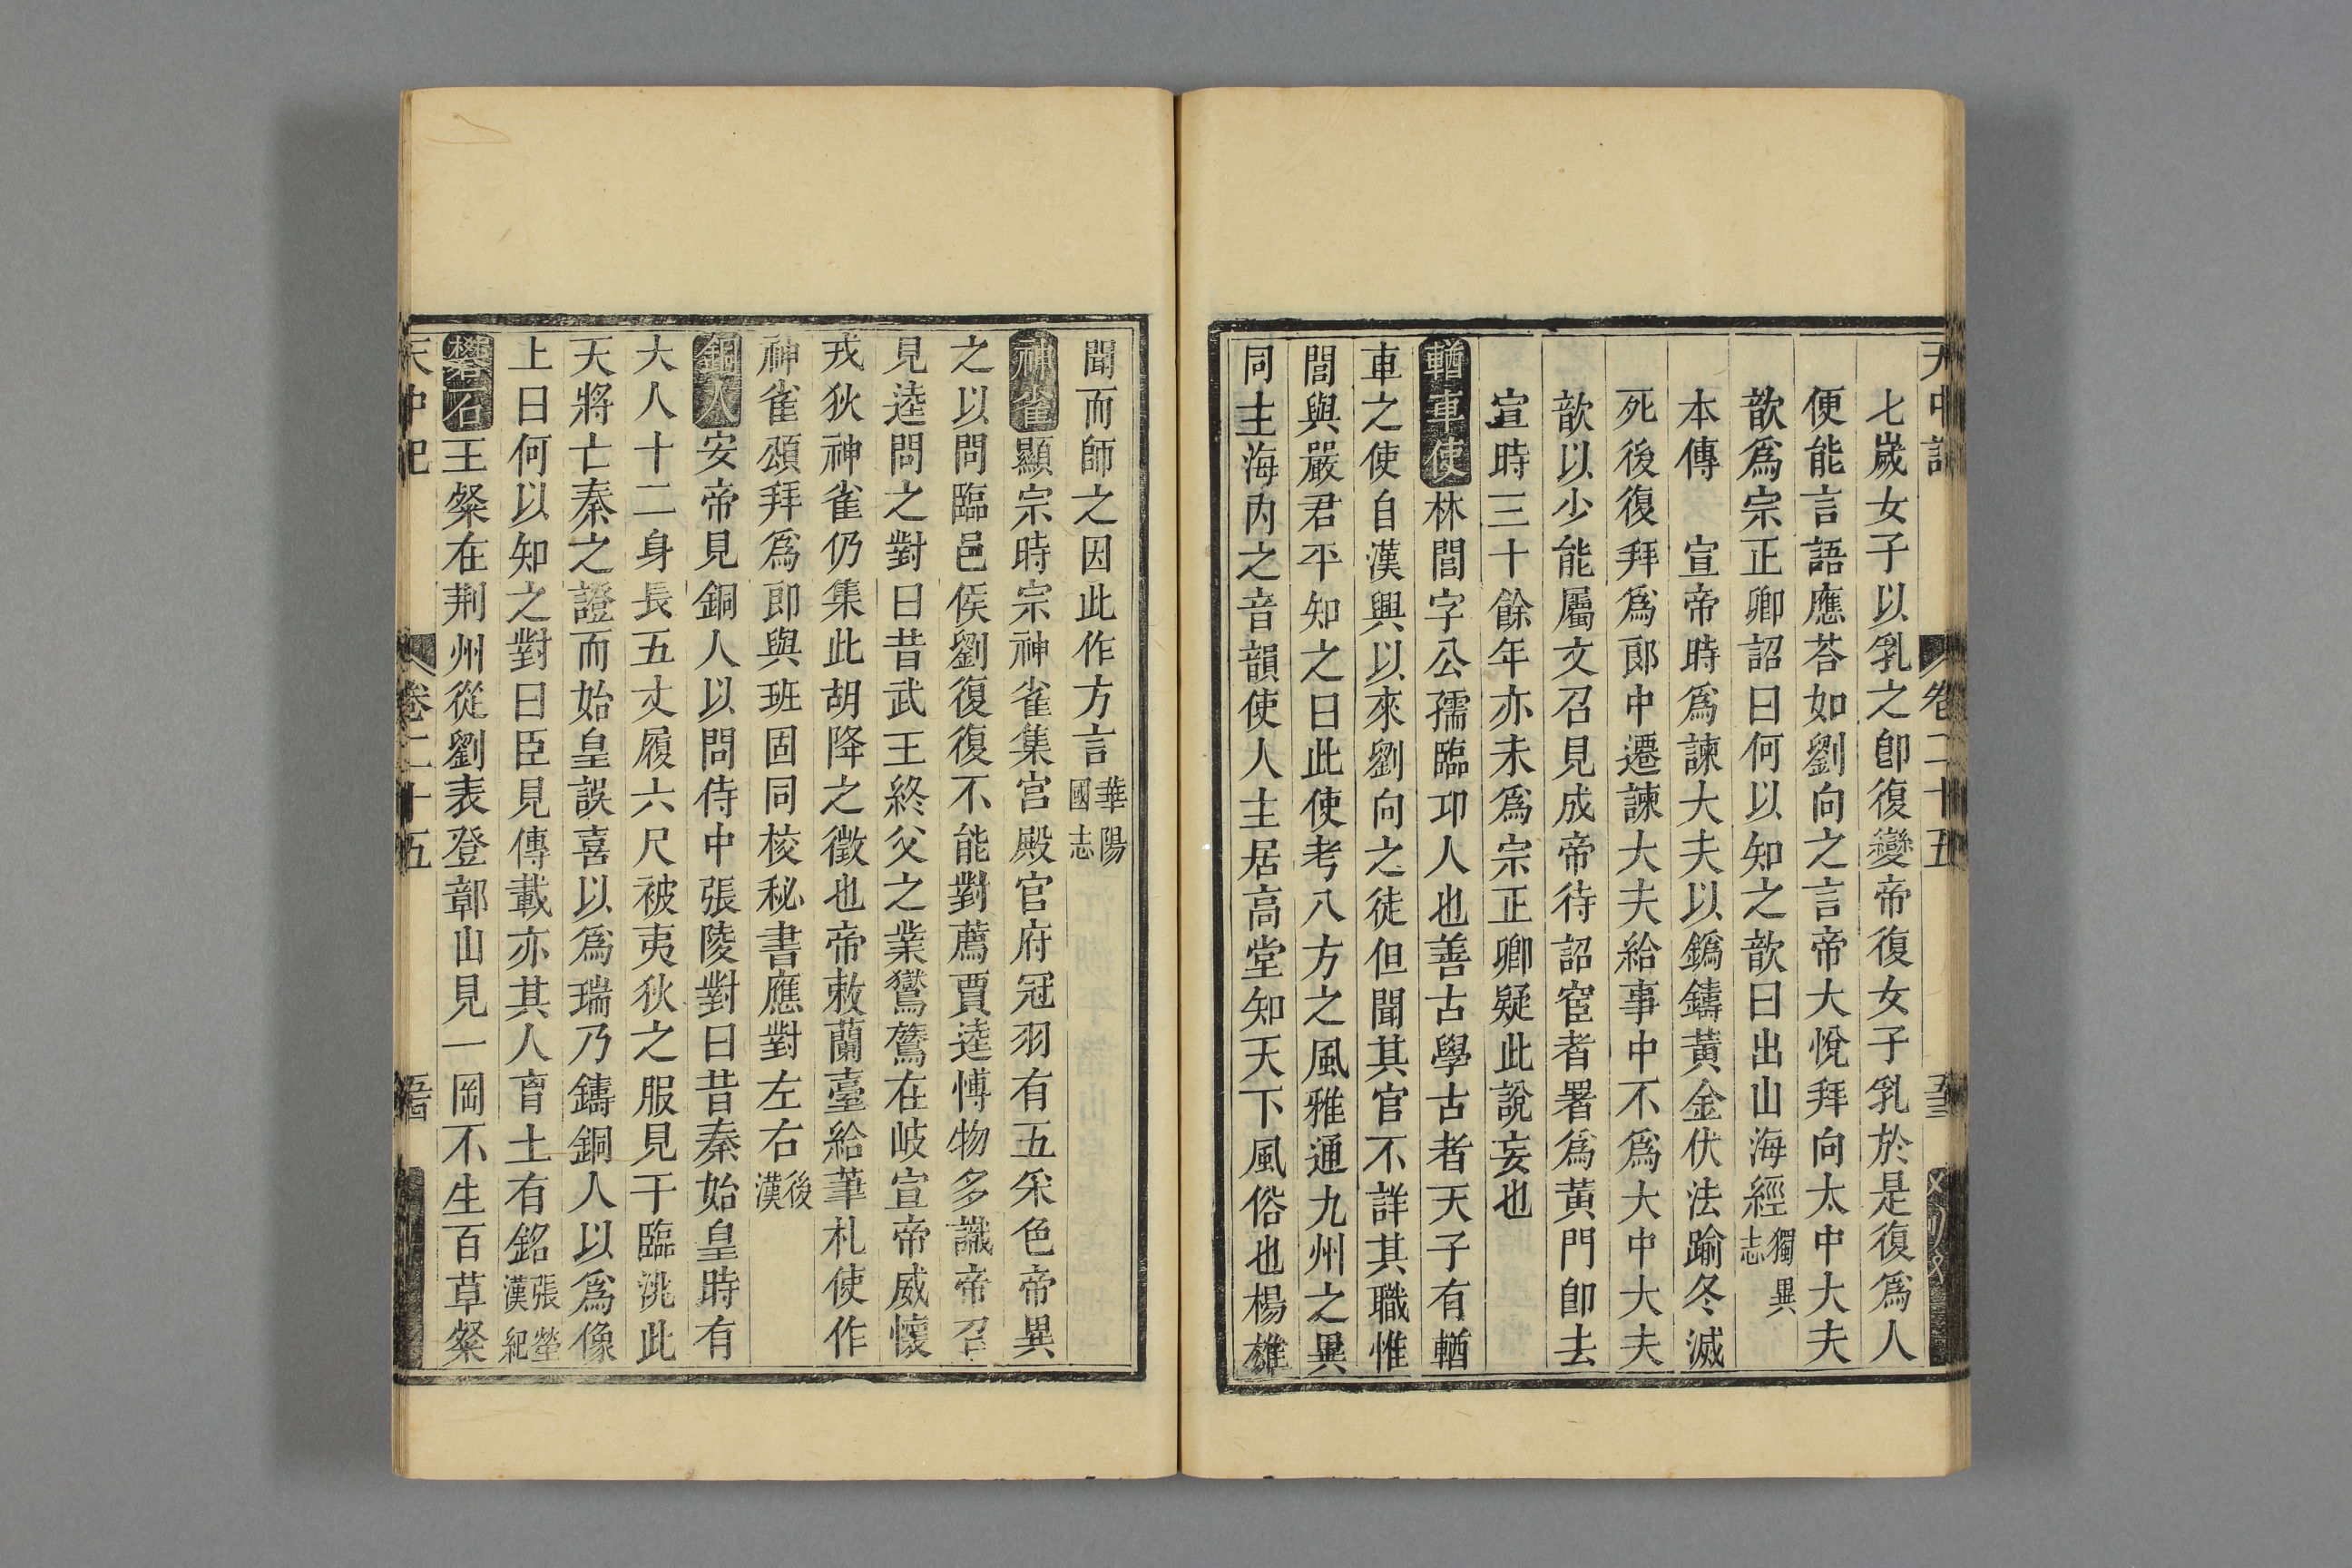 七嵗女子以乳之卽復變帝復女子乳於是復爲人
便能言語應荅如劉向之言帝大悅拜向太中大夫
歆爲宗正卿詔曰何以知之歆曰出山海經獨異志
本傳　宣帝時爲諫大夫以鑄黃金伏法踰冬減
死後復拜爲郎中遷諫大夫給事中不爲大中大夫
歆以少能屬文召見成帝待詔宦者署爲黃門卽去
宣時三十餘年亦未爲宗正卿疑此說妄也
輶車使林閭字公孺臨卭人也善古學古者天子有輶
車之使自漢興以來劉向之徒但聞其官不詳其職惟
閭與嚴君平知之曰此使考八方之風雅通九州之異
同主海內之音韻使人主居高堂知天下風俗也楊雄
聞而師之因此作方言華陽國志
神雀顯宗時宗神雀集宮殿官府冠羽有五采色帝異
之以問臨邑侯劉復復不能對薦賈逵愽物多識帝召
見逵問之對曰昔武王終父之業鸑鷟在岐宣帝威懷
戎狄神雀仍集此胡降之徵也帝敕蘭臺給筆札使作
神雀頌拜爲郎與班固同校秘書應對左右後漢
銅人安帝見銅人以問侍中張陵對曰昔秦始皇時有
大人十二身長五丈履六尺被夷狄之服見于臨洮此
天將亡秦之證而始皇誤喜以爲瑞乃鑄銅人以爲像
上曰何以知之對曰臣見傳載亦其人𦙍土有銘張瑩漢紀
礬石王粲在荆州從劉表登鄣山見一岡不生百草粲
天中記　卷二十五